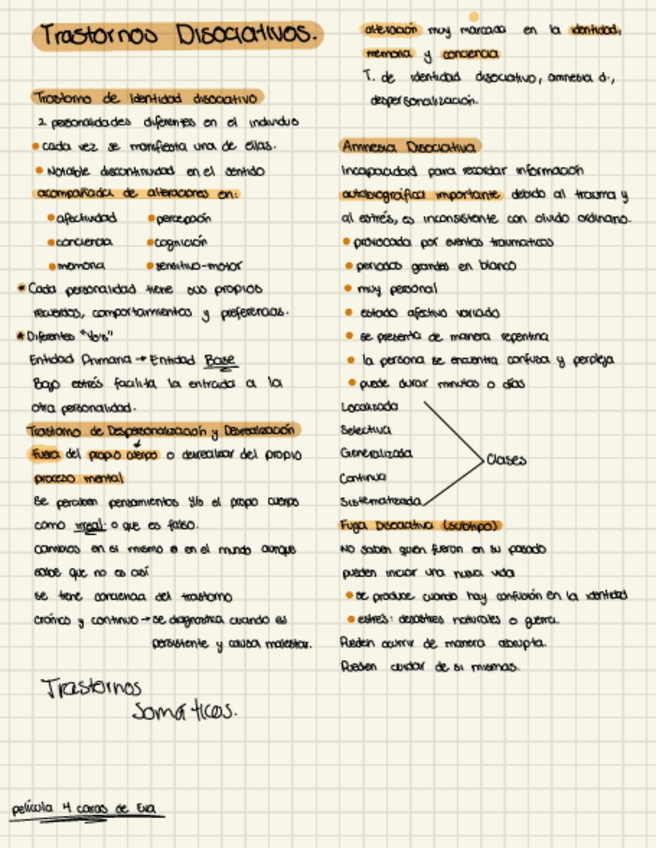 Trastornos Disociativos.
alteración muy marcada en la identidad,
memoria y conciencia
T. de identidad disociativo, amnesia d.,
despersonalización.
Trastorno de Identidad disociativo
2 personalidades diferentes en el individuo
• cada vez se manifiesta una de ellas.
• Notable discontinuidad en el sentido
acompañada de alteraciones en:
• afectividad • percepción
• conciencia • cognición
• memoria • sensitivo-motor
* Cada personalidad tiene sus propios
recuerdos, comportamientos y preferencias.
* Diferentes "Yo's"
Entidad Primaria → Entidad Base
Bajo estrés facilita la entrada a la
otra personalidad.
Trastorno de Despersonalización y Desrealización
Fuera del propio cuerpo o desrealizar del propio
proceso mental
Se perciben pensamientos y/o el propio cuerpo
como irreal o que es falso.
cambios en si mismo o en el mundo aunque
sabe que no es así
se tiene conciencia del trastorno
crónico y continuo → se diagnostica cuando es
persistente y causa malestar.
Trastornos
Somáticos.
película 4 caras de Eva
Amnesia Disociativa
Incapacidad para recordar información
autobiográfica importante debido al trauma y
al estrés, es inconsistente con olvido ordinario.
• provocada por eventos traumaticos
• periodos grandes en blanco
• muy personal
• estado afectivo variado
• se presenta de manera repentina
• la persona se encuentra confusa y perpleja
• puede durar minutos o días
Localizada
Selectiva
Generalizada
Clases
Continua
Sistematizada
Fuga Disociativa (subtipo)
No saben quien fueron en su pasado
pueden iniciar una nueva vida
• se produce cuando hay confusión en la identidad
• estrés: desastres naturales o guerra.
Pueden ocurrir de manera abrupta.
Pueden cuidar de si mismas.